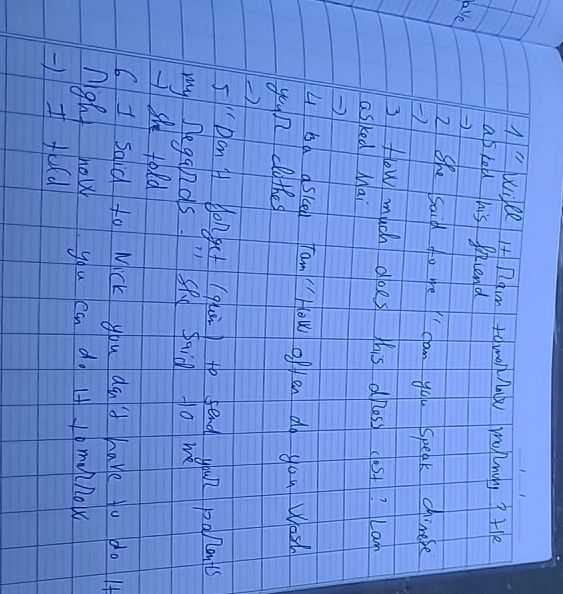 1 " Will it rain tomorrow morning? He
asked his friend
→
2 She said to me " can you speak chinese
→
3 How much does this dress cost? Lan
asked Mai
→
4 Ba asked Tam " How often do you wash
your clothes
→
5 " Don't forget (quên) to send your parents
my regards. " She said to me
→ She told
6 I said to Nick you don't have to do it
right now. you can do it tomorrow
→ I told